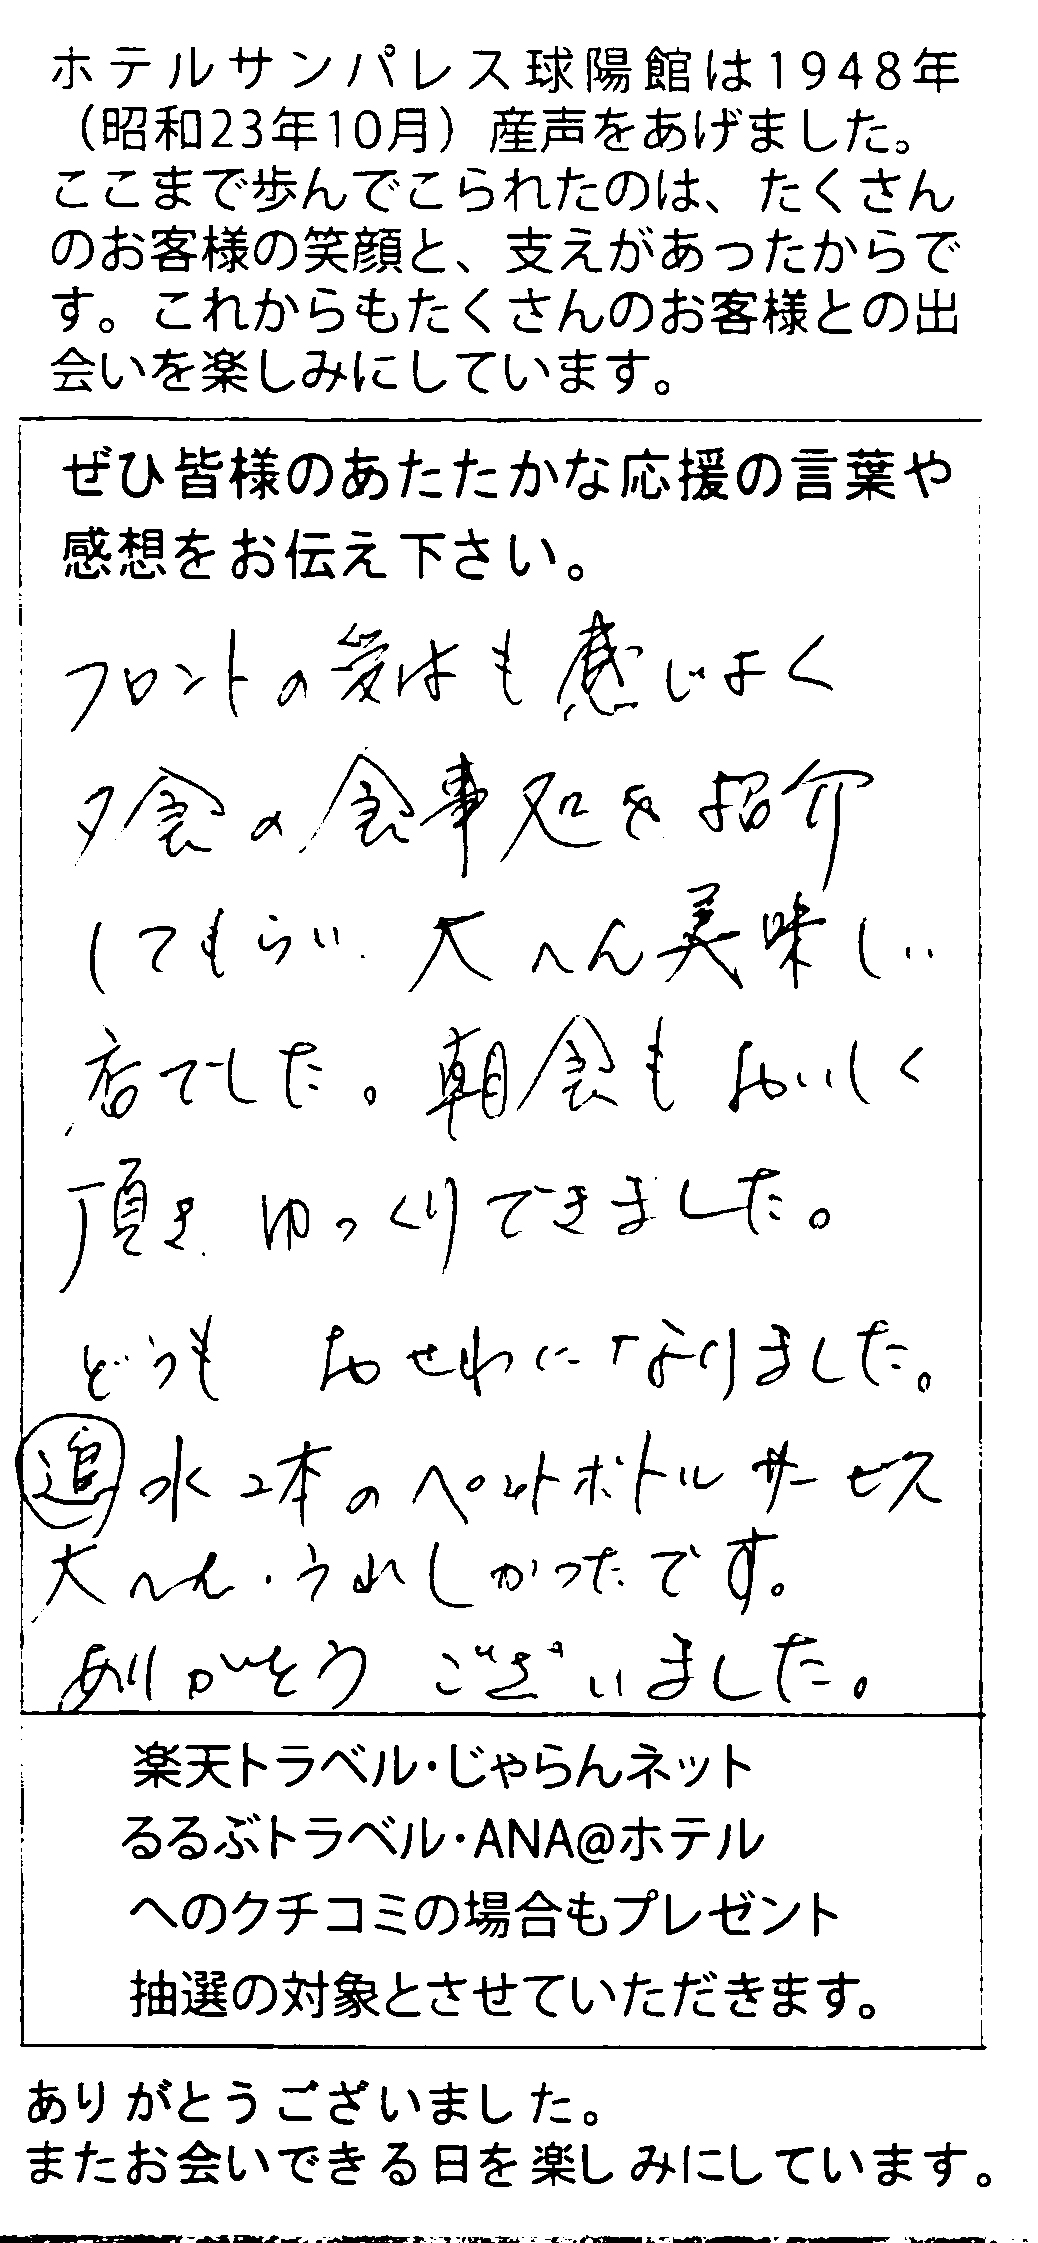 ホテルサンパレス球陽館は1948年
（昭和23年10月）産声をあげました。
ここまで歩んでこられたのは、たくさん
のお客様の笑顔と、支えがあったからで
す。これからもたくさんのお客様との出
会いを楽しみにしています。
ぜひ皆様のあたたかな応援の言葉や
感想をお伝え下さい。
フロントの受付も感じよく
夕食の食事処を紹介
してもらい 大へん美味しい
店でした。朝食もおいしく
頂き ゆっくりできました。
どうも おせわになりました。
追 水2本のペットボトルサービス
大へん・うれしかったです。
ありがとうございました。
楽天トラベル・じゃらんネット
るるぶトラベル・ANA@ホテル
へのクチコミの場合もプレゼント
抽選の対象とさせていただきます。
ありがとうございました。
またお会いできる日を楽しみにしています。